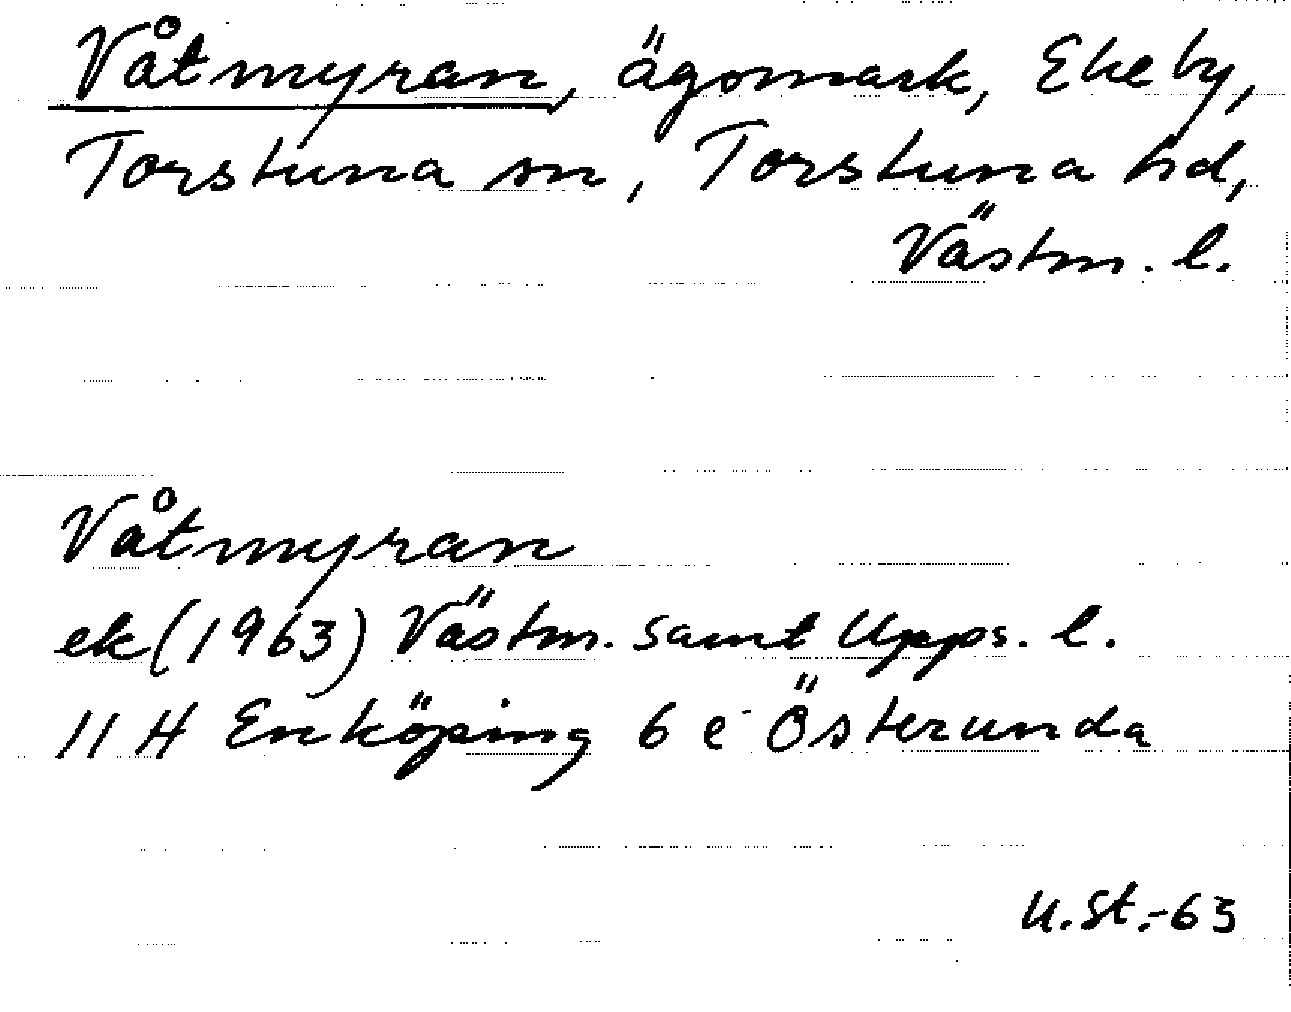 Våtmyran, ägomark, Ekeby,
Torstuna sn, Torstuna hd,
Västm. l.
Våtmyran
ek (1963) Västm. samt Upps. l.
11 H Enköping 6 e Österunda
U.St.-63